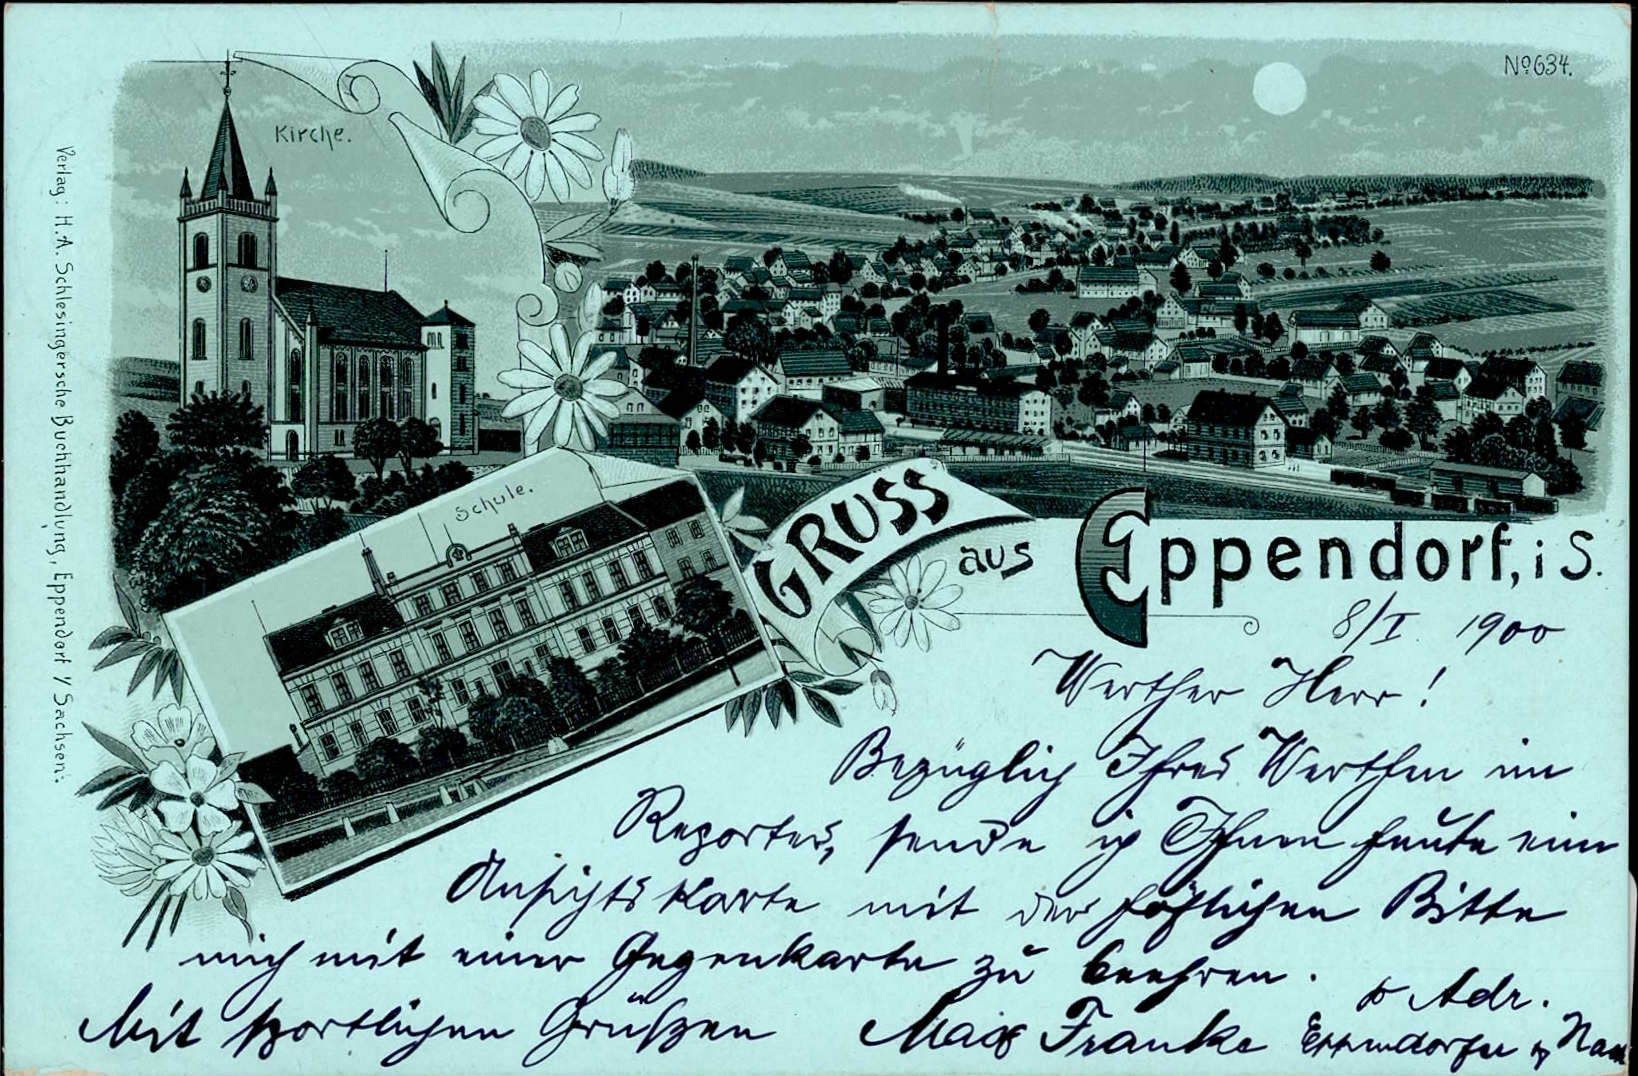 Kirche.
Nº 634.
Verlag: H. A. Schlesingersche Buchhandlung, Eppendorf i/ Sachsen.
Schule.
GRUSS
aus Eppendorf, i S.
8/I. 1900
Werther Herr!
Bezüglich Ihres Werthen im
Reporter, sende ich Ihnen heute eine
Ansichtskarte mit der höflichen Bitte
mich mit einer Gegenkarte zu beehren.
Mit sportlichen Grüßen Max Franke
Adr.
Eppendorfer